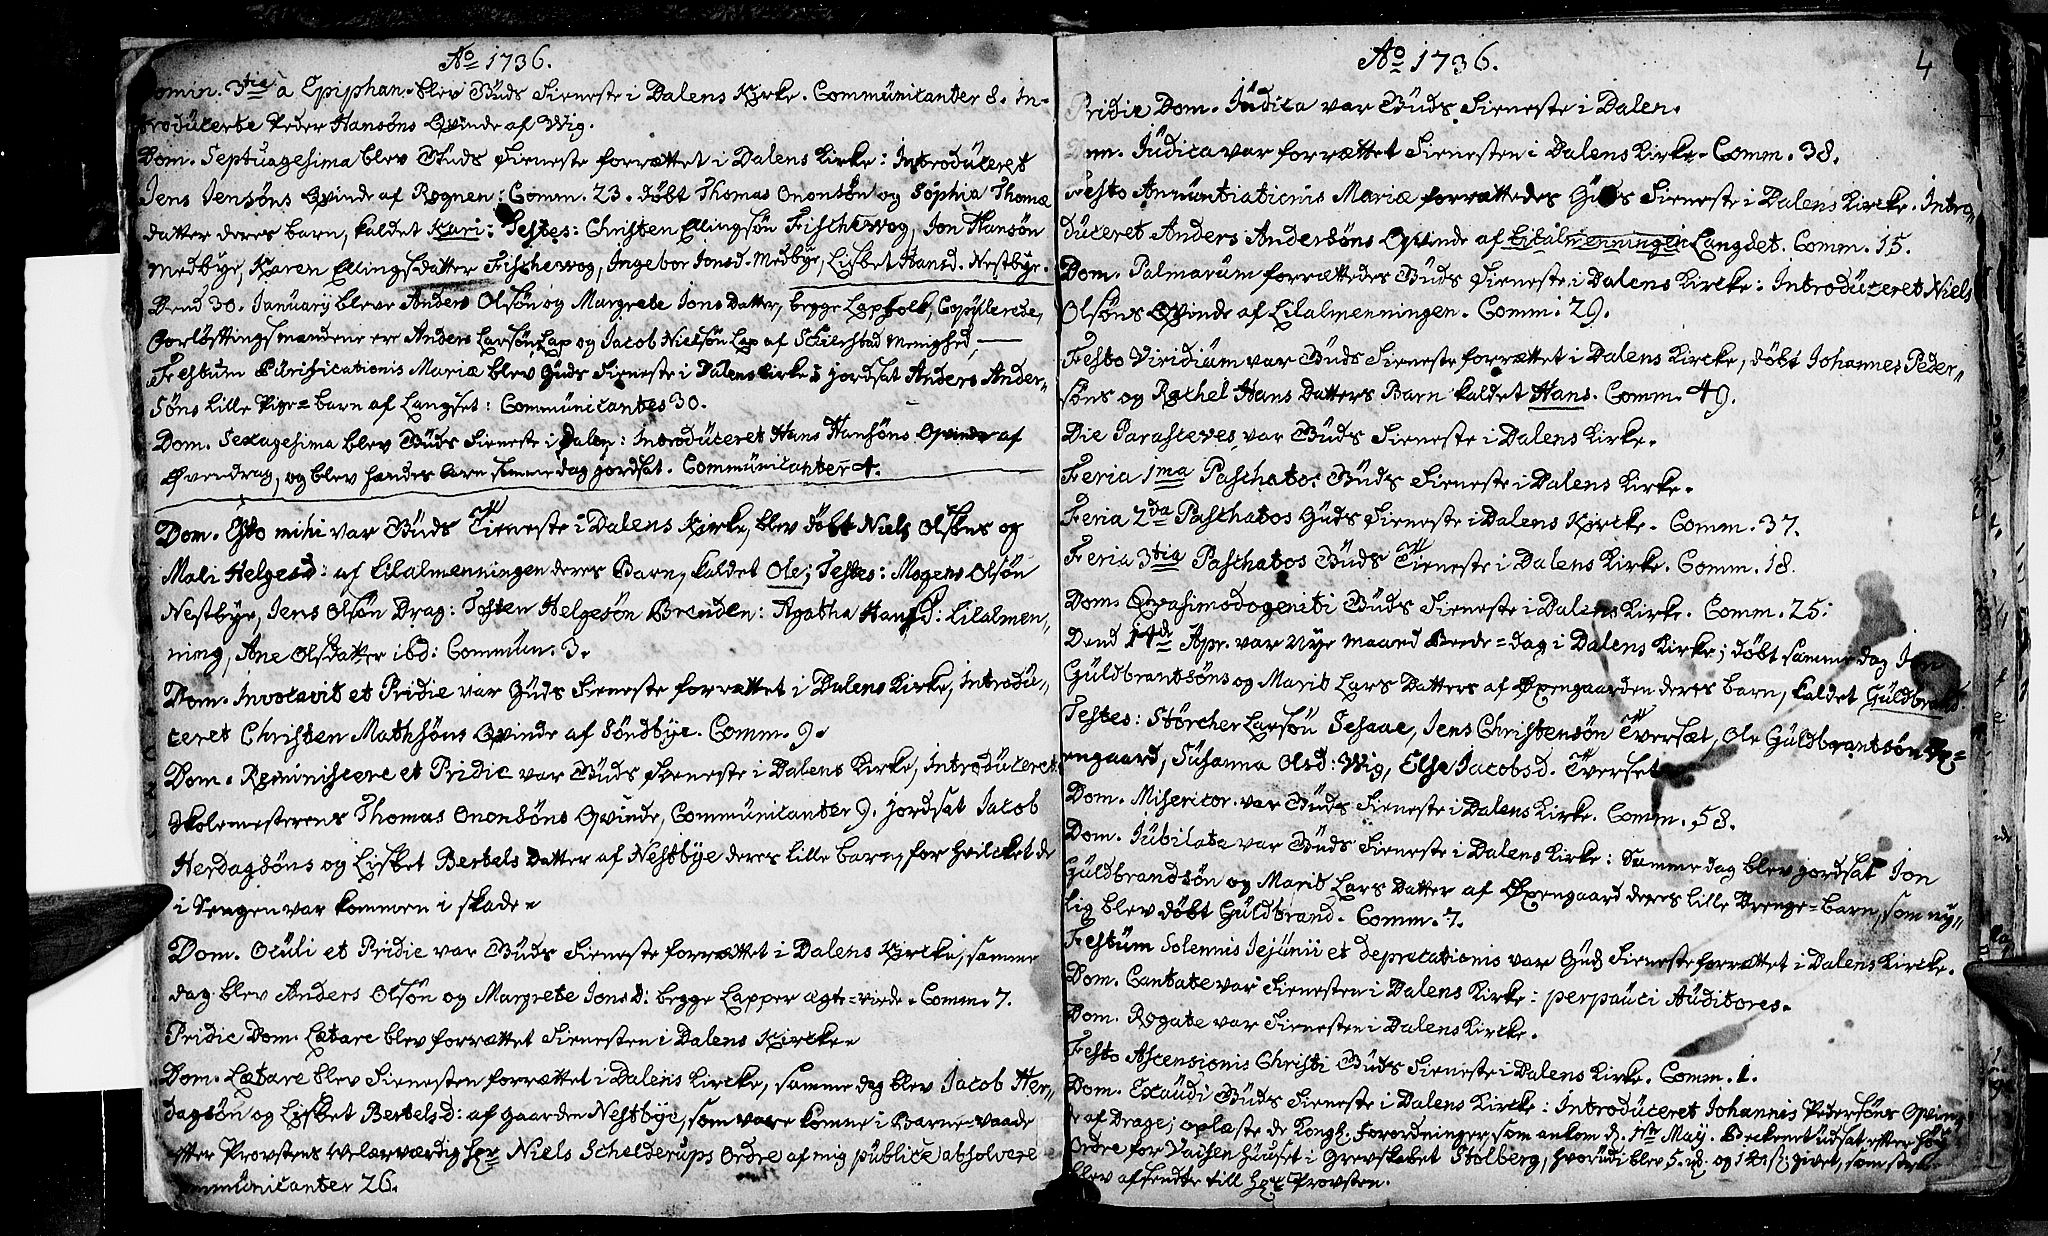 Ao 1736.
Domin. 3tia à Epiphan. blev Güds Tieneste i Dalens Kirke. Commünicanter 8. In-
trodücerte Peder Hansöns Qvinde af Wig.
Dom. Septuagesima blev Güds Tieneste forrættet i Dalens Kirke: Introdüceret
Jens Jensöns Qvinde af Rognen: Comm. 23. döbt Thomas Ononsön og Sophia Thomæ
datter deres barn, kaldet Kari: Testes: Christen Ellingsön Fischevog, Jon Hansön
Medbye, Karen Ellingsdatter Fischevog, Ingebor Jonsd. Medbye, Lisbet Hansd. Nestbye.
Dend 30. Januarij bleve Anders Olsön og Margrete Jons Datter, begge Lapfolk, Copülerede,
Forlöftingsmændene ere Anders Larsön Lap og Jacob Nielsön Lap af Skierstad Menighed,
Festum Pürificationis Mariæ blev Güds Tieneste i Dalens Kirke jordsat Anders Ander-
söns lille Pige-barn af Langset: Commünicantes 30.
Dom. Sexagesima blev Güds Tieneste i Dalen: Introdüceret Hans Hansöns Qvinde af
Øvendrag, og blev hendes barn samme dag jordsat. Commünicanter 4.
Dom. Esto mihi var Güds Tieneste i Dalens Kirke, blev döbt Niels Olsöns og
Mali Helgesd: af Lilalmenningen deres Barn, kaldet Ole; Testes: Mogens Olsön
Nestbye, Jens Olsön Drag: Tosten Helgesön Breiden: Agatha Hansd: Lilalmen-
ning, Ane Olsdatter ibd: Commün. 3.
Dom. Invocavit et Pridie var Güds Tieneste forrættet i Dalens Kirke, Introdü-
ceret Christen Mathsöns Qvinde af Söndbye. Comm. 9.
Dom. Reminiscere et Pridie var Güds Tieneste i Dalens Kirke, Introdüceret
Skolemesterens Thomas Ononsöns Qvinde, Commünicanter 9. jordsat Jacob
Herdagsöns og Lisbet Bertels Datter af Nestbye deres lille barn, for hvilcket de
i Sengen var kommen i skade.
Dom. Oculi et Pridie var Güds Tieneste forrættet i Dalens Kircke, samme
dag blev Anders Olsön og Margrete Jonsd: begge Lapper ægte-viede. Comm. 7.
Pridie Dom. Lætare blev forrættet Tienesten i Dalens Kircke.
Dom. Lætare blev Tienesten forrættet i Dalens Kircke, samme dag blev Jacob Her-
dagsön og Lisbet Bertelsd: af gaarden Nestbye, som vare komne i Barne-vaade
efter Provstens Welærværdig her Niels Schelderups Ordre af mig publicè absolvere
Commünicanter 26.
Ao 1736.
4
Pridie Dom. Jüdica var Güds Tieneste i Dalen.
Dom. Jüdica var forrættet Tienesten i Dalens Kirke. Comm. 38.
Festo Annüntiationis Mariæ forrættedes Güds Tieneste i Dalens Kircke. Intro-
düceret Anders Andersöns Qvinde af Lilalmenningen Langset. Comm. 15.
Dom. Palmarüm forrættedes Güds Tieneste i Dalens Kircke: Introdüceret Niels
Olsöns Qvinde af Lilalmenningen. Comm: 29.
Festo Viridiüm var Güds Tieneste forrættet i Dalens Kircke, döbt Johannes Peder-
söns og Rachel Hans Datters Barn kaldet Hans. Comm. 49.
Die Parasceves var Güds Tieneste i Dalens Kirke.
Feria 1ma Paschatos Güds Tieneste i Dalens Kirke.
Feria 2da Paschatos Güds Tieneste i Dalens Kircke. Comm. 37.
Feria 3tia Paschatos Güds Tieneste i Dalens Kirke. Comm. 18.
Dom. Qvasimodogeniti Güds Tieneste i Dalens Kirke. Comm. 25:
Dend 14de Apr. var Nye Maaned Beede-dag i Dalens Kirke; döbt samme dag Jon
Güldbrantsöns og Marit Lars Datters af Øxengaarden deres barn, kaldet Güldbrand.
Testes: Störcher Larsön Sesaae, Jens Christensön Tverset, Ole Güldbrantsön Øx-
engaard, Süsanna Olsd: Wig, Else Jacobsd. Tverset.
Dom. Misericor. var Güds Tieneste i Dalens Kirke. Comm. 58.
Dom. Jübilate var Güds Tieneste i Dalens Kirke: Samme dag blev jordsat Jon
Güldbrandsön og Marit Lars Datter af Øxengaard deres lille Drenge-barn, som ny-
lig blev döbt Güldbrand. Comm. 7.
Festüm Solennis Jejünii et deprecationis var Güds Tieneste forrættet i Dalens Kircke.
Dom. Cantate var Tienesten i Dalens Kirke: perpaüci Aüditores.
Dom. Rogate var Tienesten i Dalens Kircke.
Festo Ascensionis Christi Güds Tieneste i Dalens Kirke. Comm. 1.
Dom. Exaüdi Güds Tieneste i Dalens Kircke: Introdüceret Johannis Pedersöns Qvin-
de af Drage; oplæste de Kongl. Forordninger, som ankom d. 1ste May. Beckenet udsat efter höy
Ordre for Vaisen Hüuset i Grevskabet Stolberg, hvorüdi blev 5. givet, som strax
blev affendte till her Provsten.